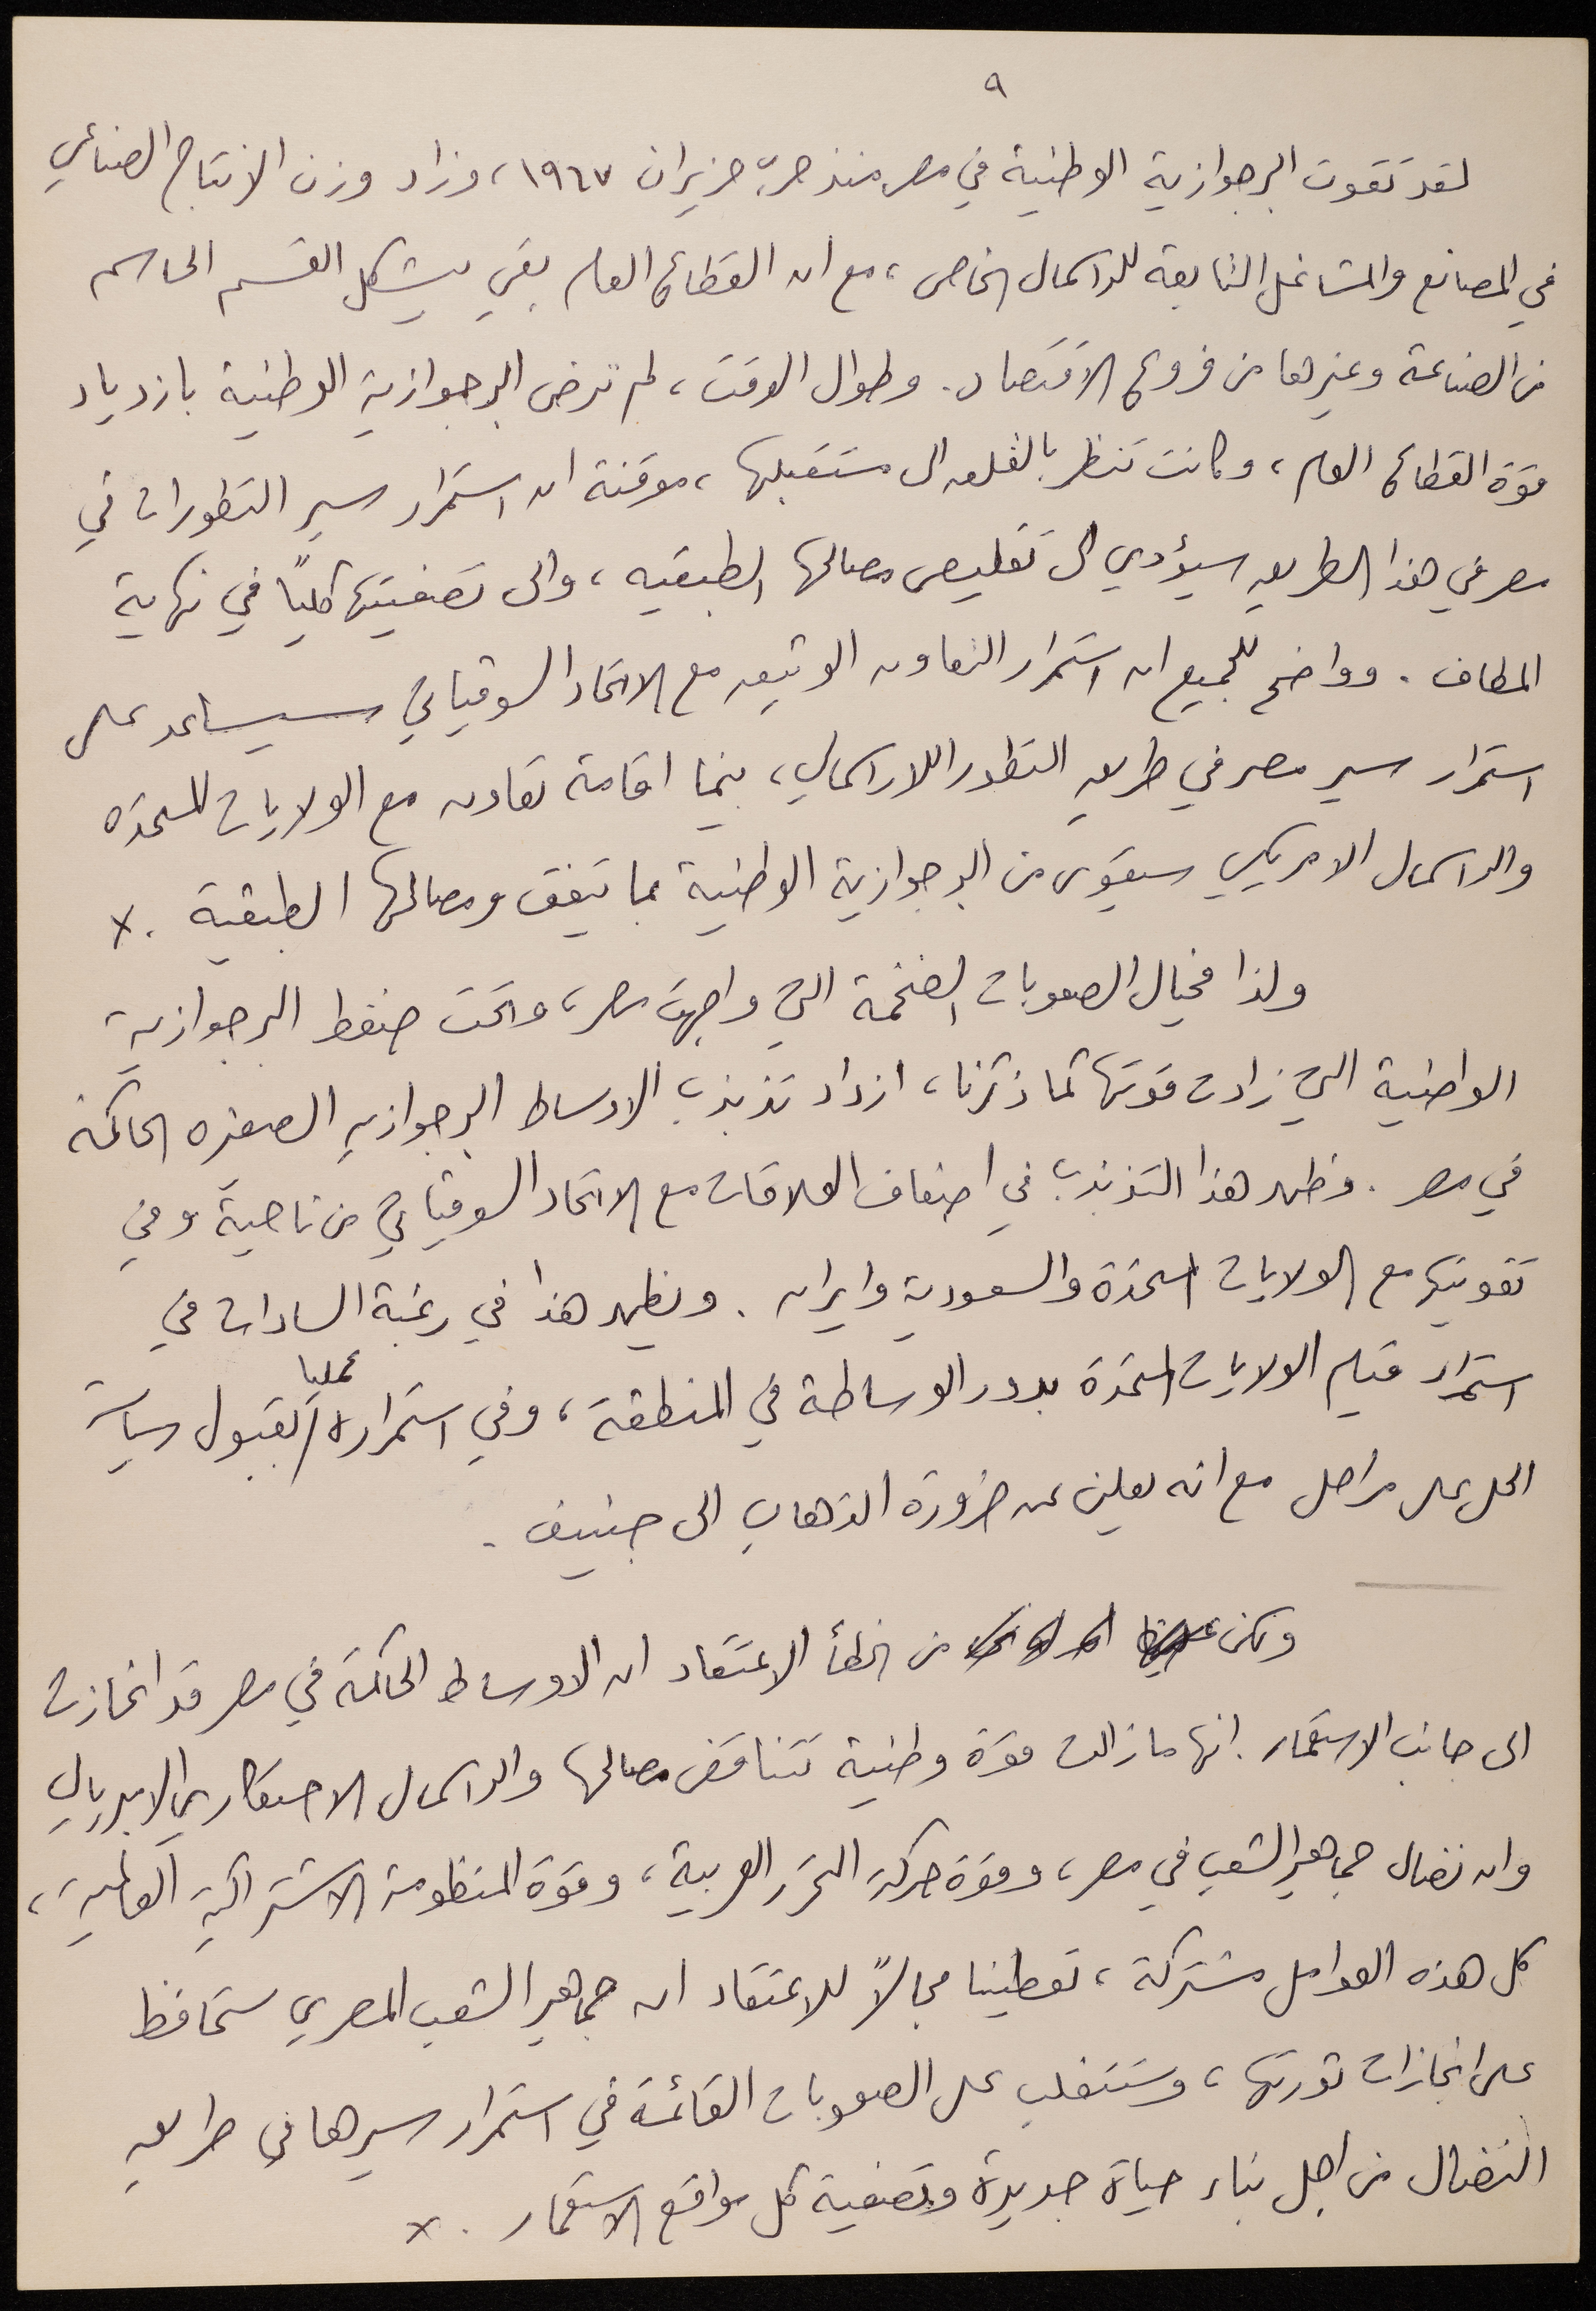 ٩
لقد تقوت البرجوازية الوطنية في مصر منذ حرب حزيران ١٩٦٧، وزاد وزن الانتاج الصناعي
في المصانع والمشاغل التابعة للرأسمال الخاص، مع ان القطاع العام بقي يشكل القسم الحاسم
من الصناعة وغيرها من فروع الاقتصاد. وطوال الوقت، لم ترض البرجوازية الوطنية بازدياد
قوة القطاع العام، وكانت تنظر بالقلق الى مستقبلها، موقنة ان استمرار سير التطورات في
مصر في هذا الطريق سيؤدي الى تقليص مصالحها الطبقيه، والى تصفيتها كلياً في نهاية
المطاف. وواضح للجميع ان استمرار التعاون الوثيق مع الاتحاد السوفياتي سيساعد على
استمرار سير مصر في طريق التطور اللارأسمالي، بينما اقامة تعاون مع الولايات المتحده
والرأسمال الامريكي سيقوى من البرجوازية الوطنية بما يتفق ومصالحها الطبقية. x
ولذا فحيال الصعوبات الضخمة التي واجهت مصر، وتحت ضغط البرجوازية
الواطنية التي زادت قوتها كما ذكرنا، ازداد تذبذب الاوساط البرجوازيه الصغيره الحاكمة
في مصر. وظهر هذا التذبذب في اضعاف العلاقات مع الاتحاد السوفياتي من ناحية وفي
تقويتها مع الولايات المتحدة والسعودية وايران. ويظهر هذا في رغبة السادات في
استمرار قيام الولايات المتحدة بدور الوساطة في المنطقة، وفي استمراره عمليا بقبول سياسة
الحل على مراحل مع انه يعلن عن ضرورة الذهاب الى جنيف.
ولكن من الخطأ الاعتقاد ان الاوساط الحاكمة في مصر قد انحازت
الى جانب الاستعمار. انها مازالت قوة وطنية تتناقض مصالحها والرأسمال الاحتكاري الامبريالي
وان نضال جماهير الشعب في مصر، وقوة حركة التحرر العربية، وقوة المنظومة الاشتراكية العالمية،
كل هذه العوامل مشتركة، تعطينا مجالاً للاعتقاد ان جماهير الشعب المصري ستحافظ
على انجازات ثورتها، وستتغلب على الصعوبات القائمة في استمرار سيرها في طريق
النضال من اجل بناء حياة جديدة وتصفية كل مواقع الاستعمار. x